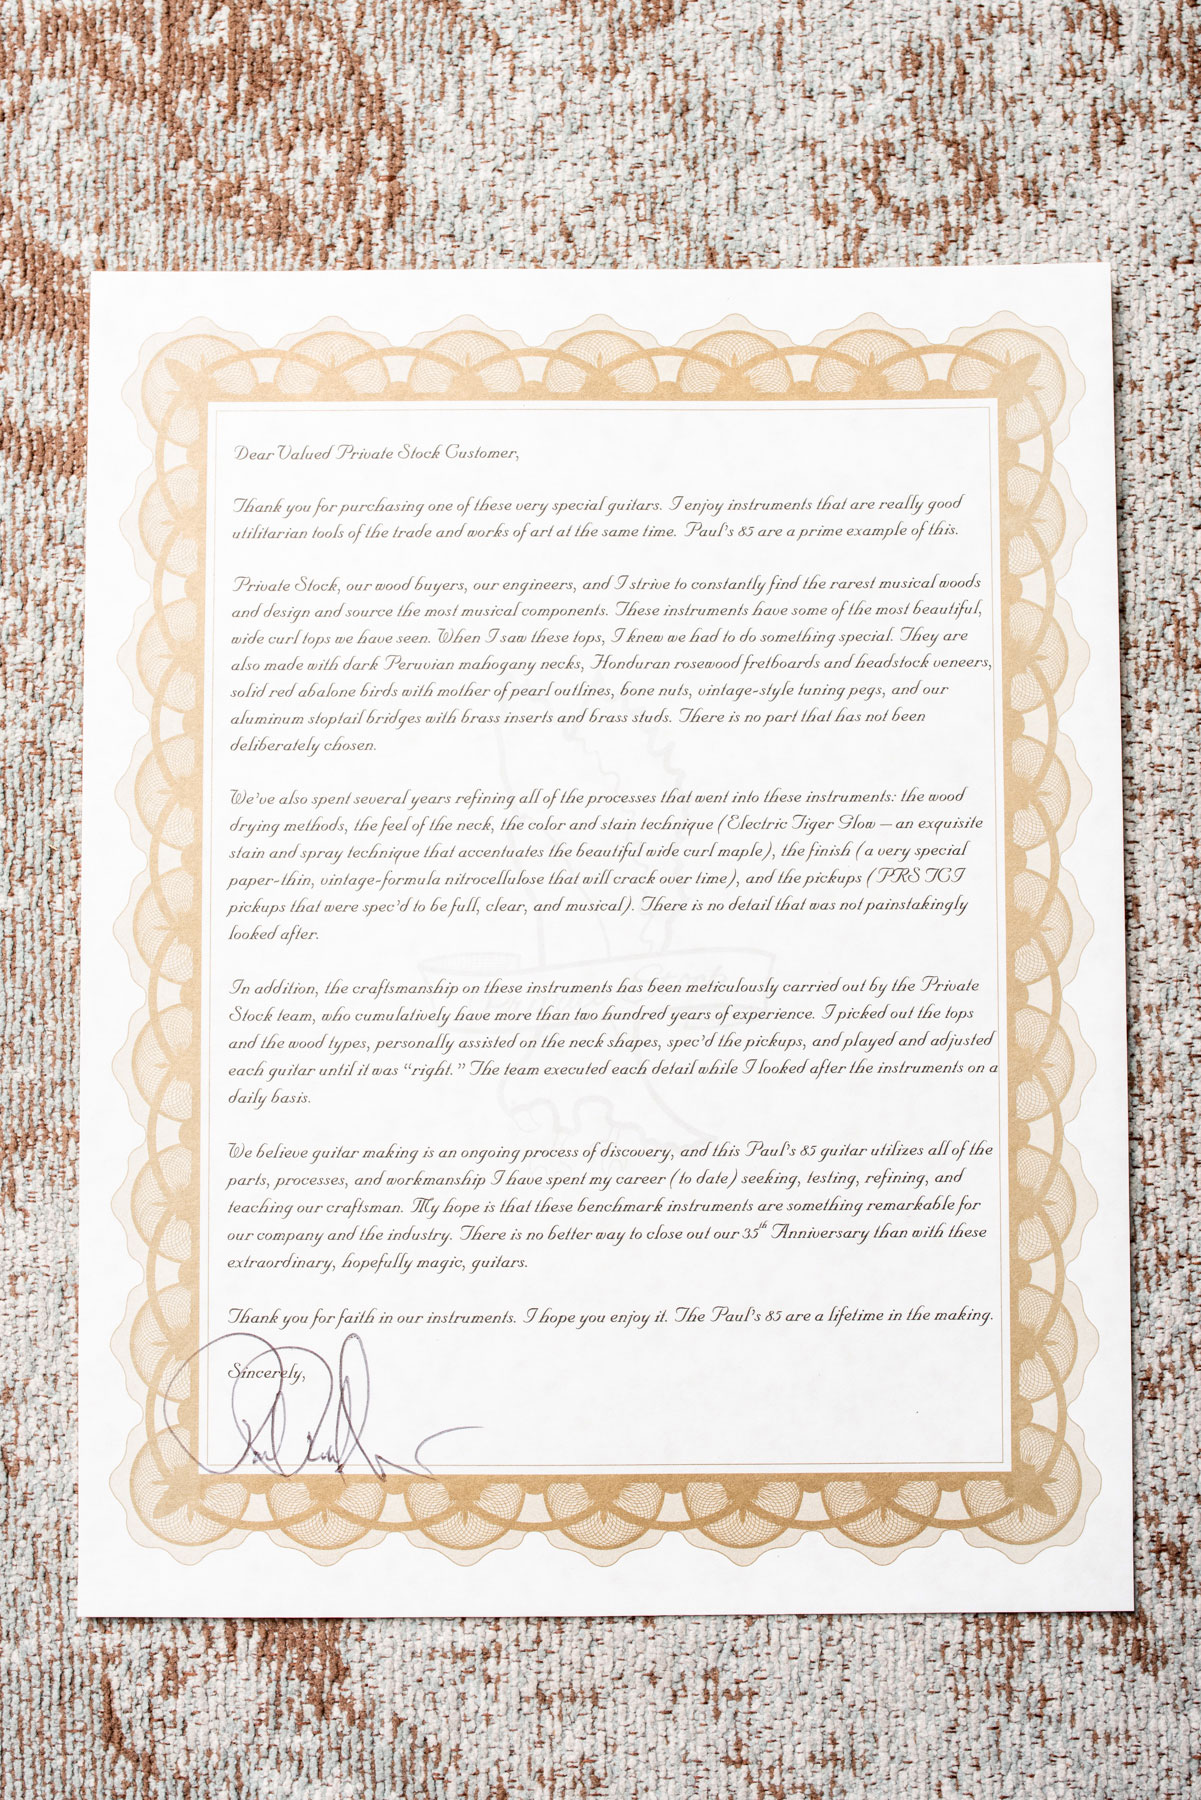 Dear Valued Private Stock Customer,
Thank you for purchasing one of these very special guitars. I enjoy instruments that are really good
utilitarian tools of the trade and works of art at the same time. Paul's 85 are a prime example of this.
Private Stock, our wood buyers, our engineers, and I strive to constantly find the rarest musical woods
and design and source the most musical components. These instruments have some of the most beautiful,
wide curl tops we have seen. When I saw these tops, I knew we had to do something special. They are
also made with dark Peruvian mahogany necks, Honduran rosewood fretboards and headstock veneers,
solid red abalone birds with mother of pearl outlines, bone nuts, vintage-style tuning pegs, and our
aluminum stoptail bridges with brass inserts and brass studs. There is no part that has not been
deliberately chosen.
We've also spent several years refining all of the processes that went into these instruments: the wood
drying methods, the feel of the neck, the color and stain technique (Electric Tiger Glow – an exquisite
stain and spray technique that accentuates the beautiful wide curl maple), the finish (a very special
paper-thin, vintage-formula nitrocellulose that will crack over time), and the pickups (PRS TCI
pickups that were spec'd to be full, clear, and musical). There is no detail that was not painstakingly
looked after.
In addition, the craftsmanship on these instruments has been meticulously carried out by the Private
Stock team, who cumulatively have more than two hundred years of experience. I picked out the tops
and the wood types, personally assisted on the neck shapes, spec'd the pickups, and played and adjusted
each guitar until it was “right.” The team executed each detail while I looked after the instruments on a
daily basis.
We believe guitar making is an ongoing process of discovery, and this Paul's 85 guitar utilizes all of the
parts, processes, and workmanship I have spent my career (to date) seeking, testing, refining, and
teaching our craftsman. My hope is that these benchmark instruments are something remarkable for
our company and the industry. There is no better way to close out our 35th Anniversary than with these
extraordinary, hopefully magic, guitars.
Thank you for faith in our instruments. I hope you enjoy it. The Paul's 85 are a lifetime in the making.
Sincerely,